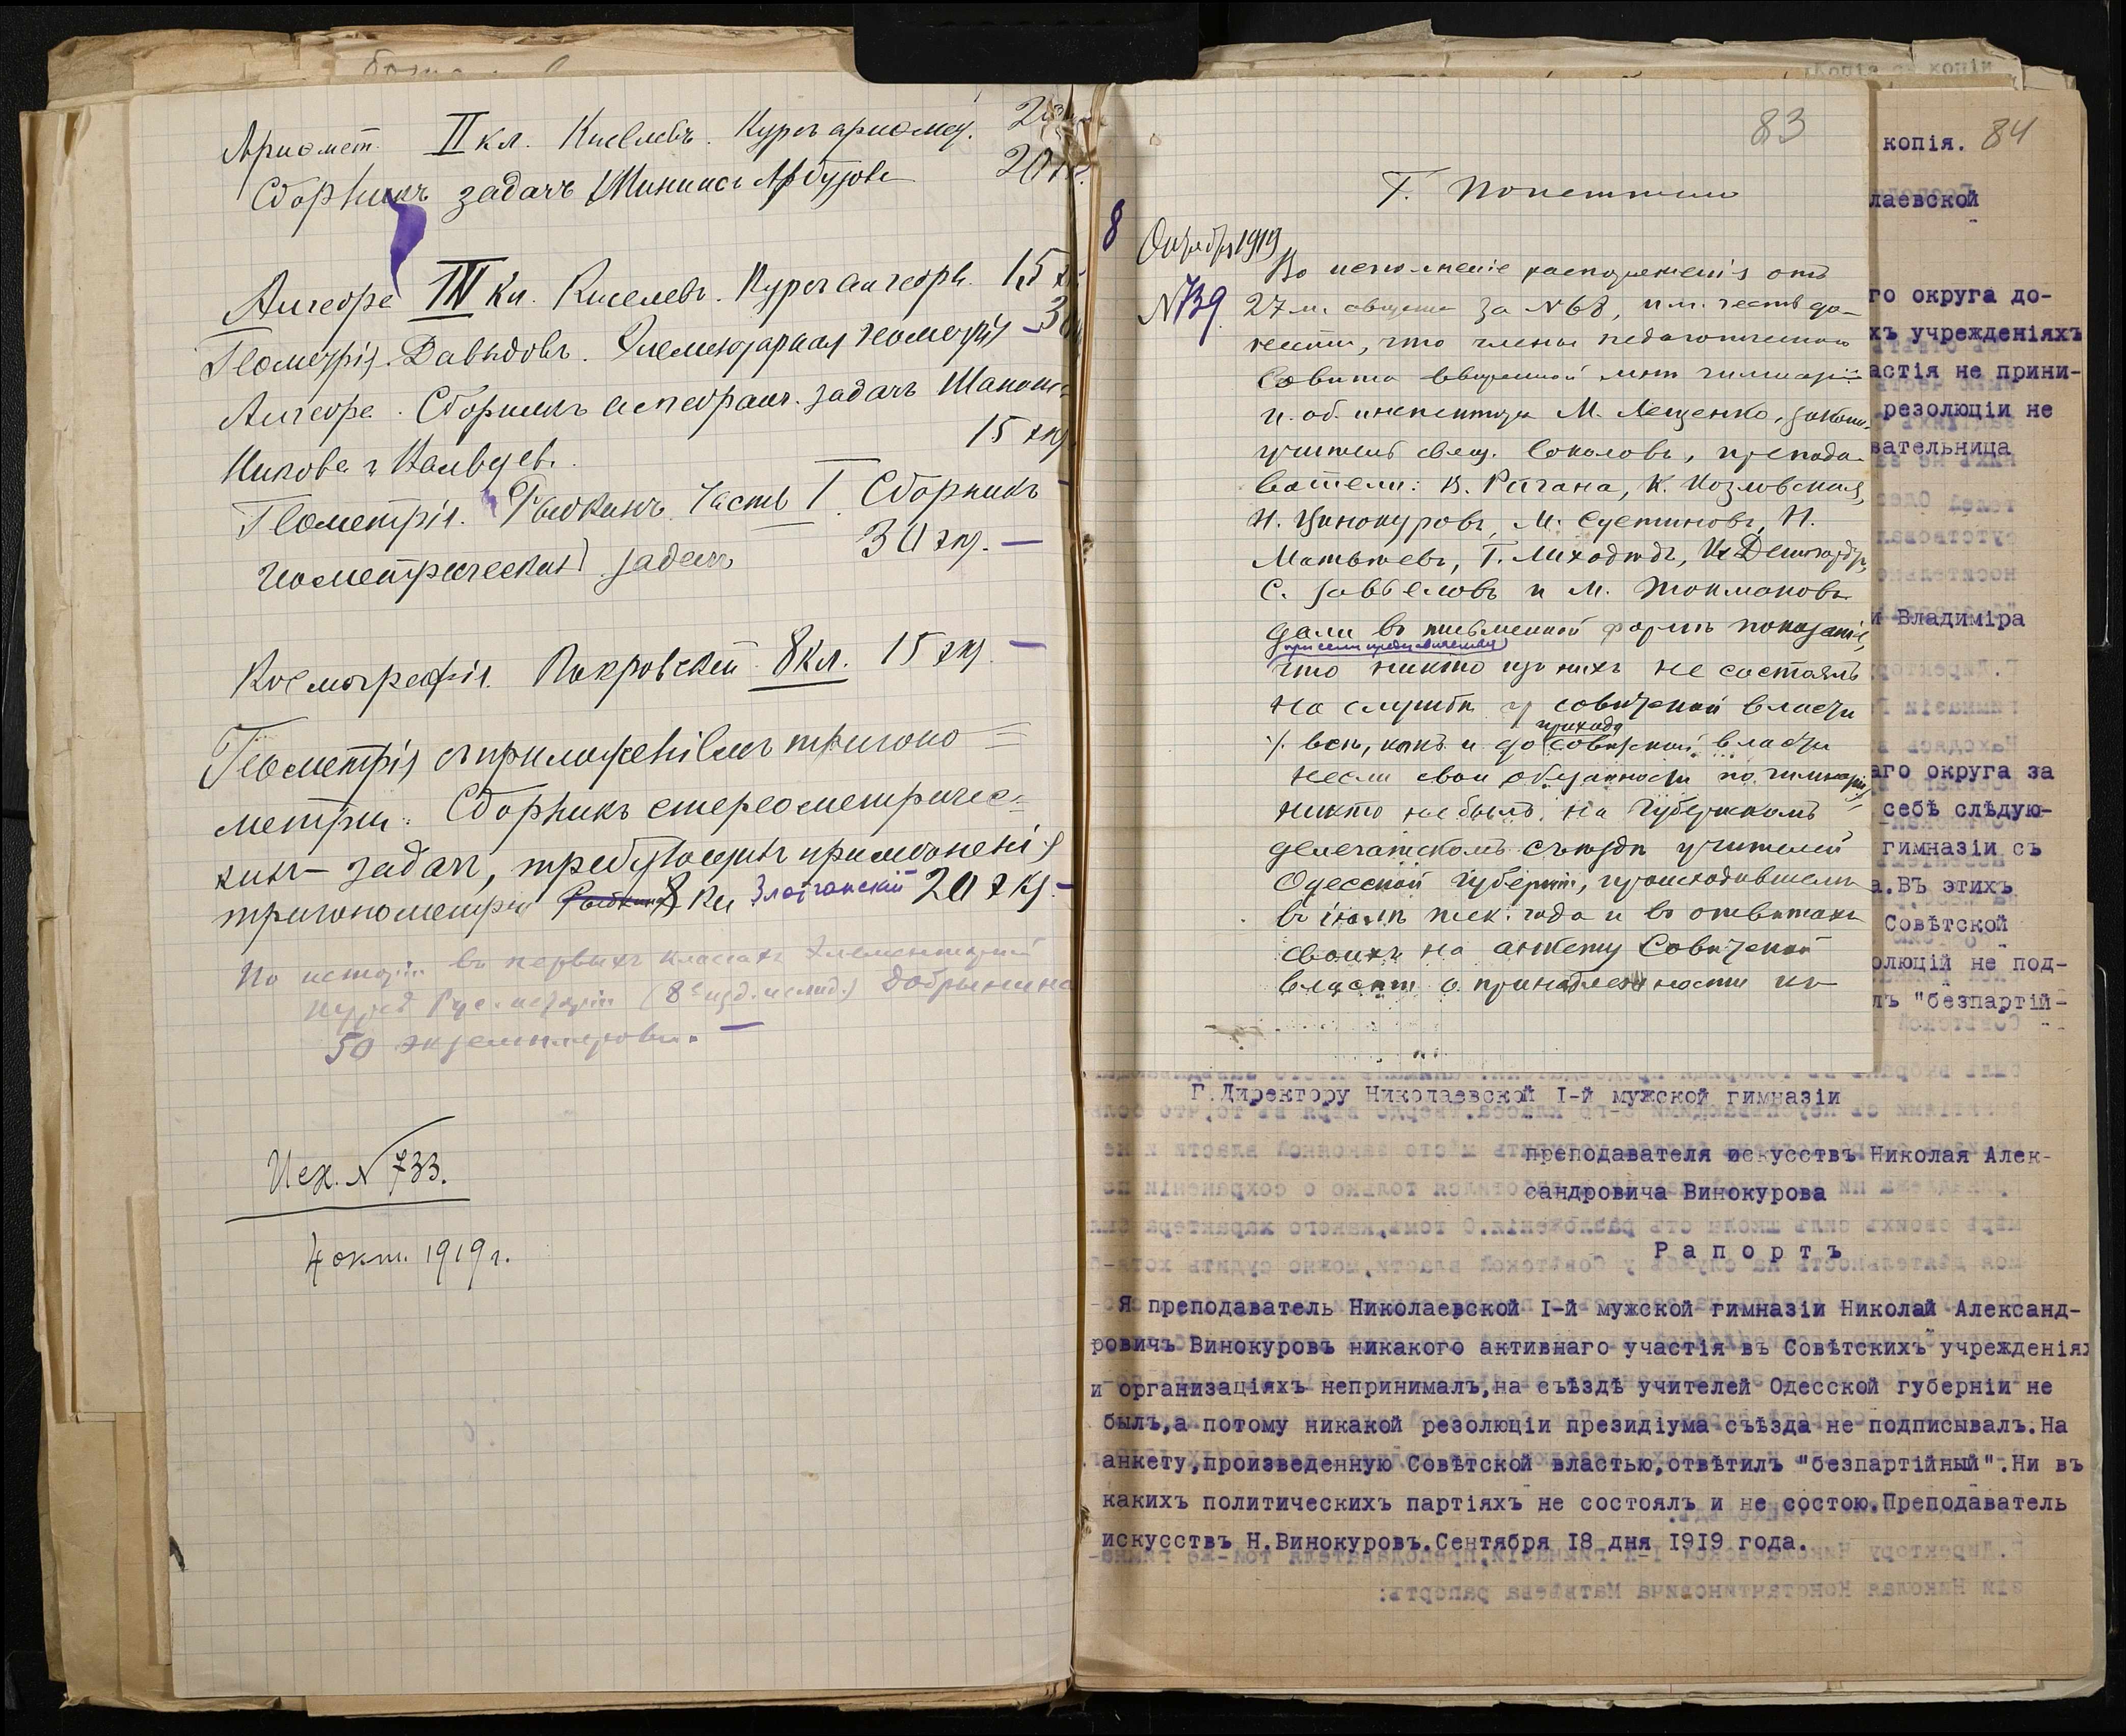 Ариѳмет. II кл. Киселевъ. Курсъ ариѳмет.
Сборникъ задачъ Шиминсъ Арбузовъ 20
Алгебра IV Кл. Киселевъ. Курсъ алгебры. 15
Геометрія. Давыдовъ. Элементарная геометрія – 30
Алгебра. Сборникъ алгебраич. задачъ Шапош-
никова и Вальцев.
15 экз
Геометрія. Рыбкинъ. Часть I. Сборникъ
геометрическихъ задачъ 30 экз. —
Космографія. Покровскій 8 кл. 15 экз. —
Геометрія съ приложеніемъ тригоно=
метріи. Сборникъ стереометричес=
кихъ задач, требующихъ примѣненія
тригонометріи Рыбкинъ 8 Кл Злотчанскій 20 экз –
По исторіи въ первыхъ классахъ Элементарный
курсъ Рус. исторіи (8е изд. ) Добрынина
50 экземпляровъ. —
Исх. № 733.
4 окт. 1919 г.
83
Г. Попечителю
8
Октября 1919
№ 739
Во исполненіе распоряженія отъ
27 м. за № 68, им. честь до-
нести, что члены педагогическаго
Совѣта ввѣренной мнѣ гимназіи
и. об. инспектора М. Лещенко, законо-
учитель свящ. Соколовъ, препода-
ватели: В. Ригана, К. Козловская,
Н. Винокуровъ, М. Суетиновъ, Н.
Матвѣевъ, Г. Лиходѣдъ,
С. Завьяловъ и М. Токмаковъ
дали въ письменной формѣ показанія,
при семъ представляемыя
что никто изъ нихъ не состоялъ
на службѣ у совѣтской власти
прихода
всѣ, какъ и до совѣтской власти
несли свои обязанности по гимназіи,
никто не былъ на Губернскомъ
делегатскомъ съѣздѣ учителей
Одесской губерніи, происходившемъ
въ іюлѣ тек. года и въ отвѣтахъ
своихъ на анкету Совѣтской
власти о принадлежности къ
копія. 84
лаевской
го округа до-
хъ учрежденіяхъ
астія не прини-
резолюціи не
вательница
и Владиміра
аго округа за
себѣ слѣдую-
гимназіи съ
а.Въ этихъ
Совѣтской
олюцій не под-
лъ "безпартій-
Г.Директору Николаевской I-й мужской гимназіи
преподавателя искусствъ Николая Алек-
сандровича Винокурова
Рапортъ
Я преподаватель Николаевской I-й мужской гимназіи Николай Александ-
ровичъ Винокуровъ никакого активнаго участія въ Совѣтскихъ учрежденіях
и организаціяхъ непринималъ,на съѣздѣ учителей Одесской губерніи не
былъ,а потому никакой резолюціи президіума съѣзда не подписывалъ.На
анкету,произведенную Совѣтской властью,отвѣтилъ "безпартійный".Ни въ
какихъ политическихъ партіяхъ не состоялъ и не состою.Преподаватель
искусствъ Н.Винокуровъ.Сентября 18 дня 1919 года.